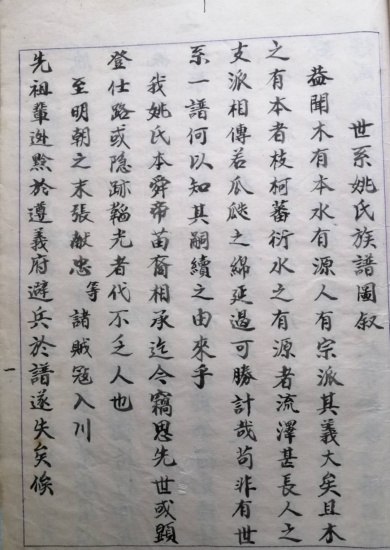 世系姚氏族譜圖叙
蓋聞木有本水有源人有宗派其義大矣且木
之有本者枝柯蕃衍水之有源者流澤甚長人之
支派相傳若瓜瓞之綿延過可勝計哉苟非有世
系一譜何以知其嗣續之由來乎
我姚氏本舜帝苗裔相承迄今竊思先世或顕
登仕路或隐跡韜光者代不乏人也
至明朝之末張献忠等諸賊寇入川
先祖輩迯黔於遵義府避兵於譜遂失矣俟
一